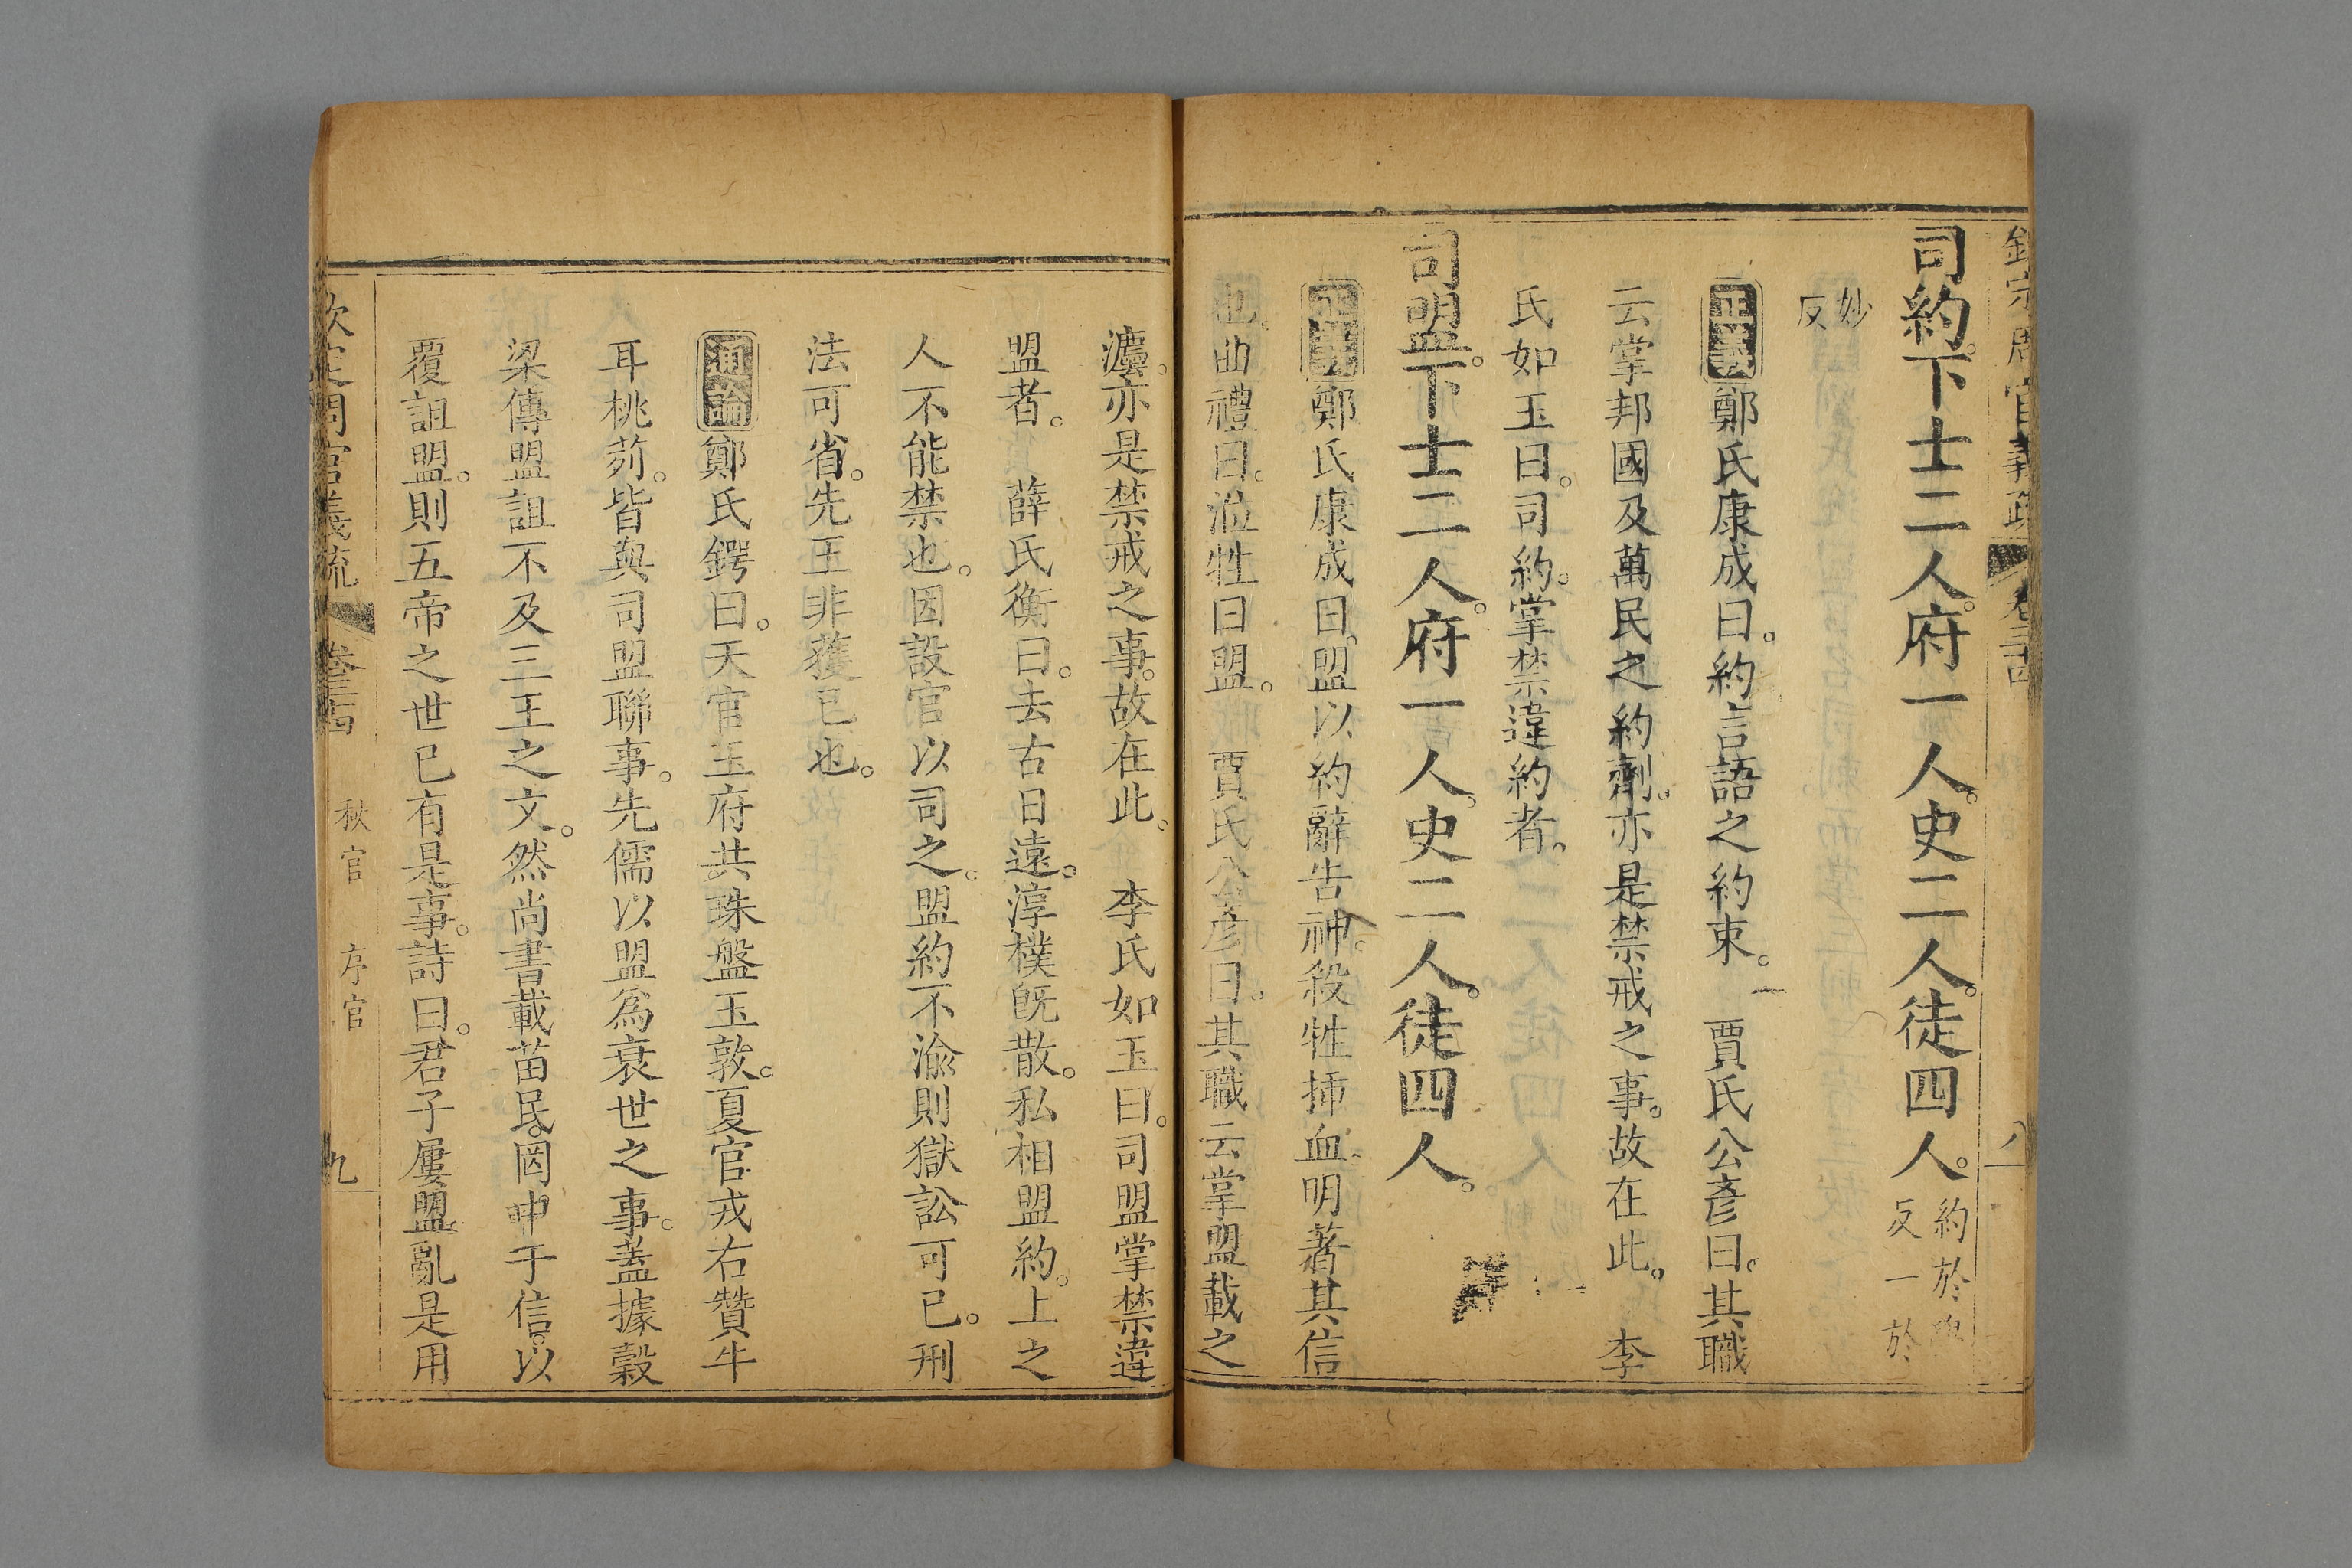 欽定周官義疏 卷三十四 八
司約。下士二人。府一人。史二人。徒四人。約於
反一於
妙
反
正義鄭氏康成曰。約言語之約束。 賈氏公彥曰。其職
云掌邦國及萬民之約劑。亦是禁戒之事。故在此。 李
氏如玉曰。司約。掌禁違約者。
司盟。下士二人。府一人。史二人。徒四人。
正義鄭氏康成曰。盟以約辭告神。殺牲插血。明著其信
也。曲禮曰。涖牲曰盟。 賈氏公彥曰。其職云掌盟載之
灋。亦是禁戒之事。故在此。 李氏如玉曰。司盟掌禁違
盟者。 薛氏衡曰。去古日遠。淳樸旣散。私相盟約。上之
人不能禁也。因設官以司之。盟約不渝則獄訟可已。刑
法可省。先王非獲已也。
通論鄭氏鍔曰。天官玉府共珠盤玉敦。夏官戎右贊牛
耳桃茢。皆與司盟聯事。先儒以盟爲衰世之事。蓋據穀
梁傳盟詛不及三王之文。然尚書載苗民。罔中于信。以
覆詛盟。則五帝之世已有是事。詩曰。君子屢盟亂是用
欽定周官義疏 卷三十四 秋官 序官 九